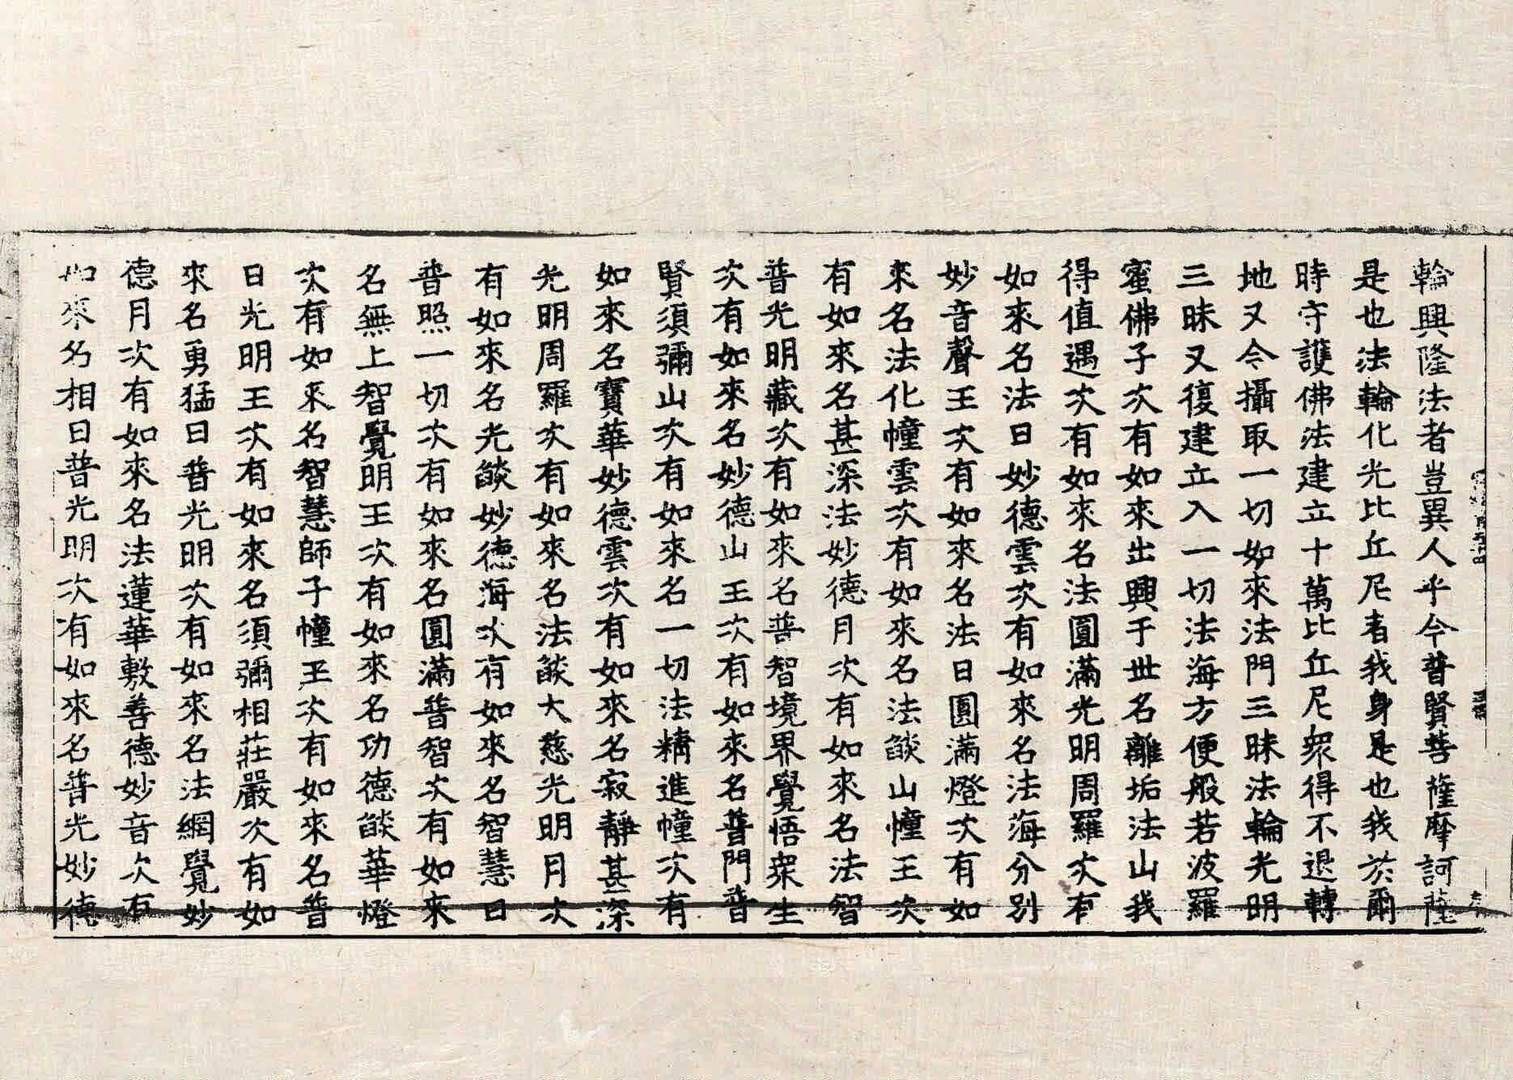 輪興隆法者豈異人乎今普賢菩薩摩訶薩
是也法輪化光比丘尼者我身是也我於爾
時守護佛法建立十萬比丘尼眾得不退轉
地又令攝取一切如來法門三昧法輪光明
三昧又復建立入一切法海方便般若波羅
蜜佛子次有如來出興于世名離垢法山我
得值遇次有如來名法圓滿光明周羅次有
如來名法日妙德雲次有如來名法海分別
妙音聲王次有如來名法日圓滿燈次有如
來名法化幢雲次有如來名法燄山幢王次
有如來名甚深法妙德月次有如來名法智
普光明藏次有如來名普智境界覺悟眾生
次有如來名妙德山王次有如來名普門普
賢須彌山次有如來名一切法精進幢次有
如來名寶華妙德雲次有如來名寂靜甚深
光明周羅次有如來名法燄大慈光明月次
有如來名光燄妙德海次有如來名智慧日
普照一切次有如來名圓滿普智次有如來
名無上智覺明王次有如來名功德燄華燈
次有如來名智慧師子幢王次有如來名普
日光明王次有如來名須彌相莊嚴次有如
來名勇猛日普光明次有如來名法網覺妙
德月次有如來名法蓮華敷善德妙音次有
如來名相日普光明次有如來名普光妙德